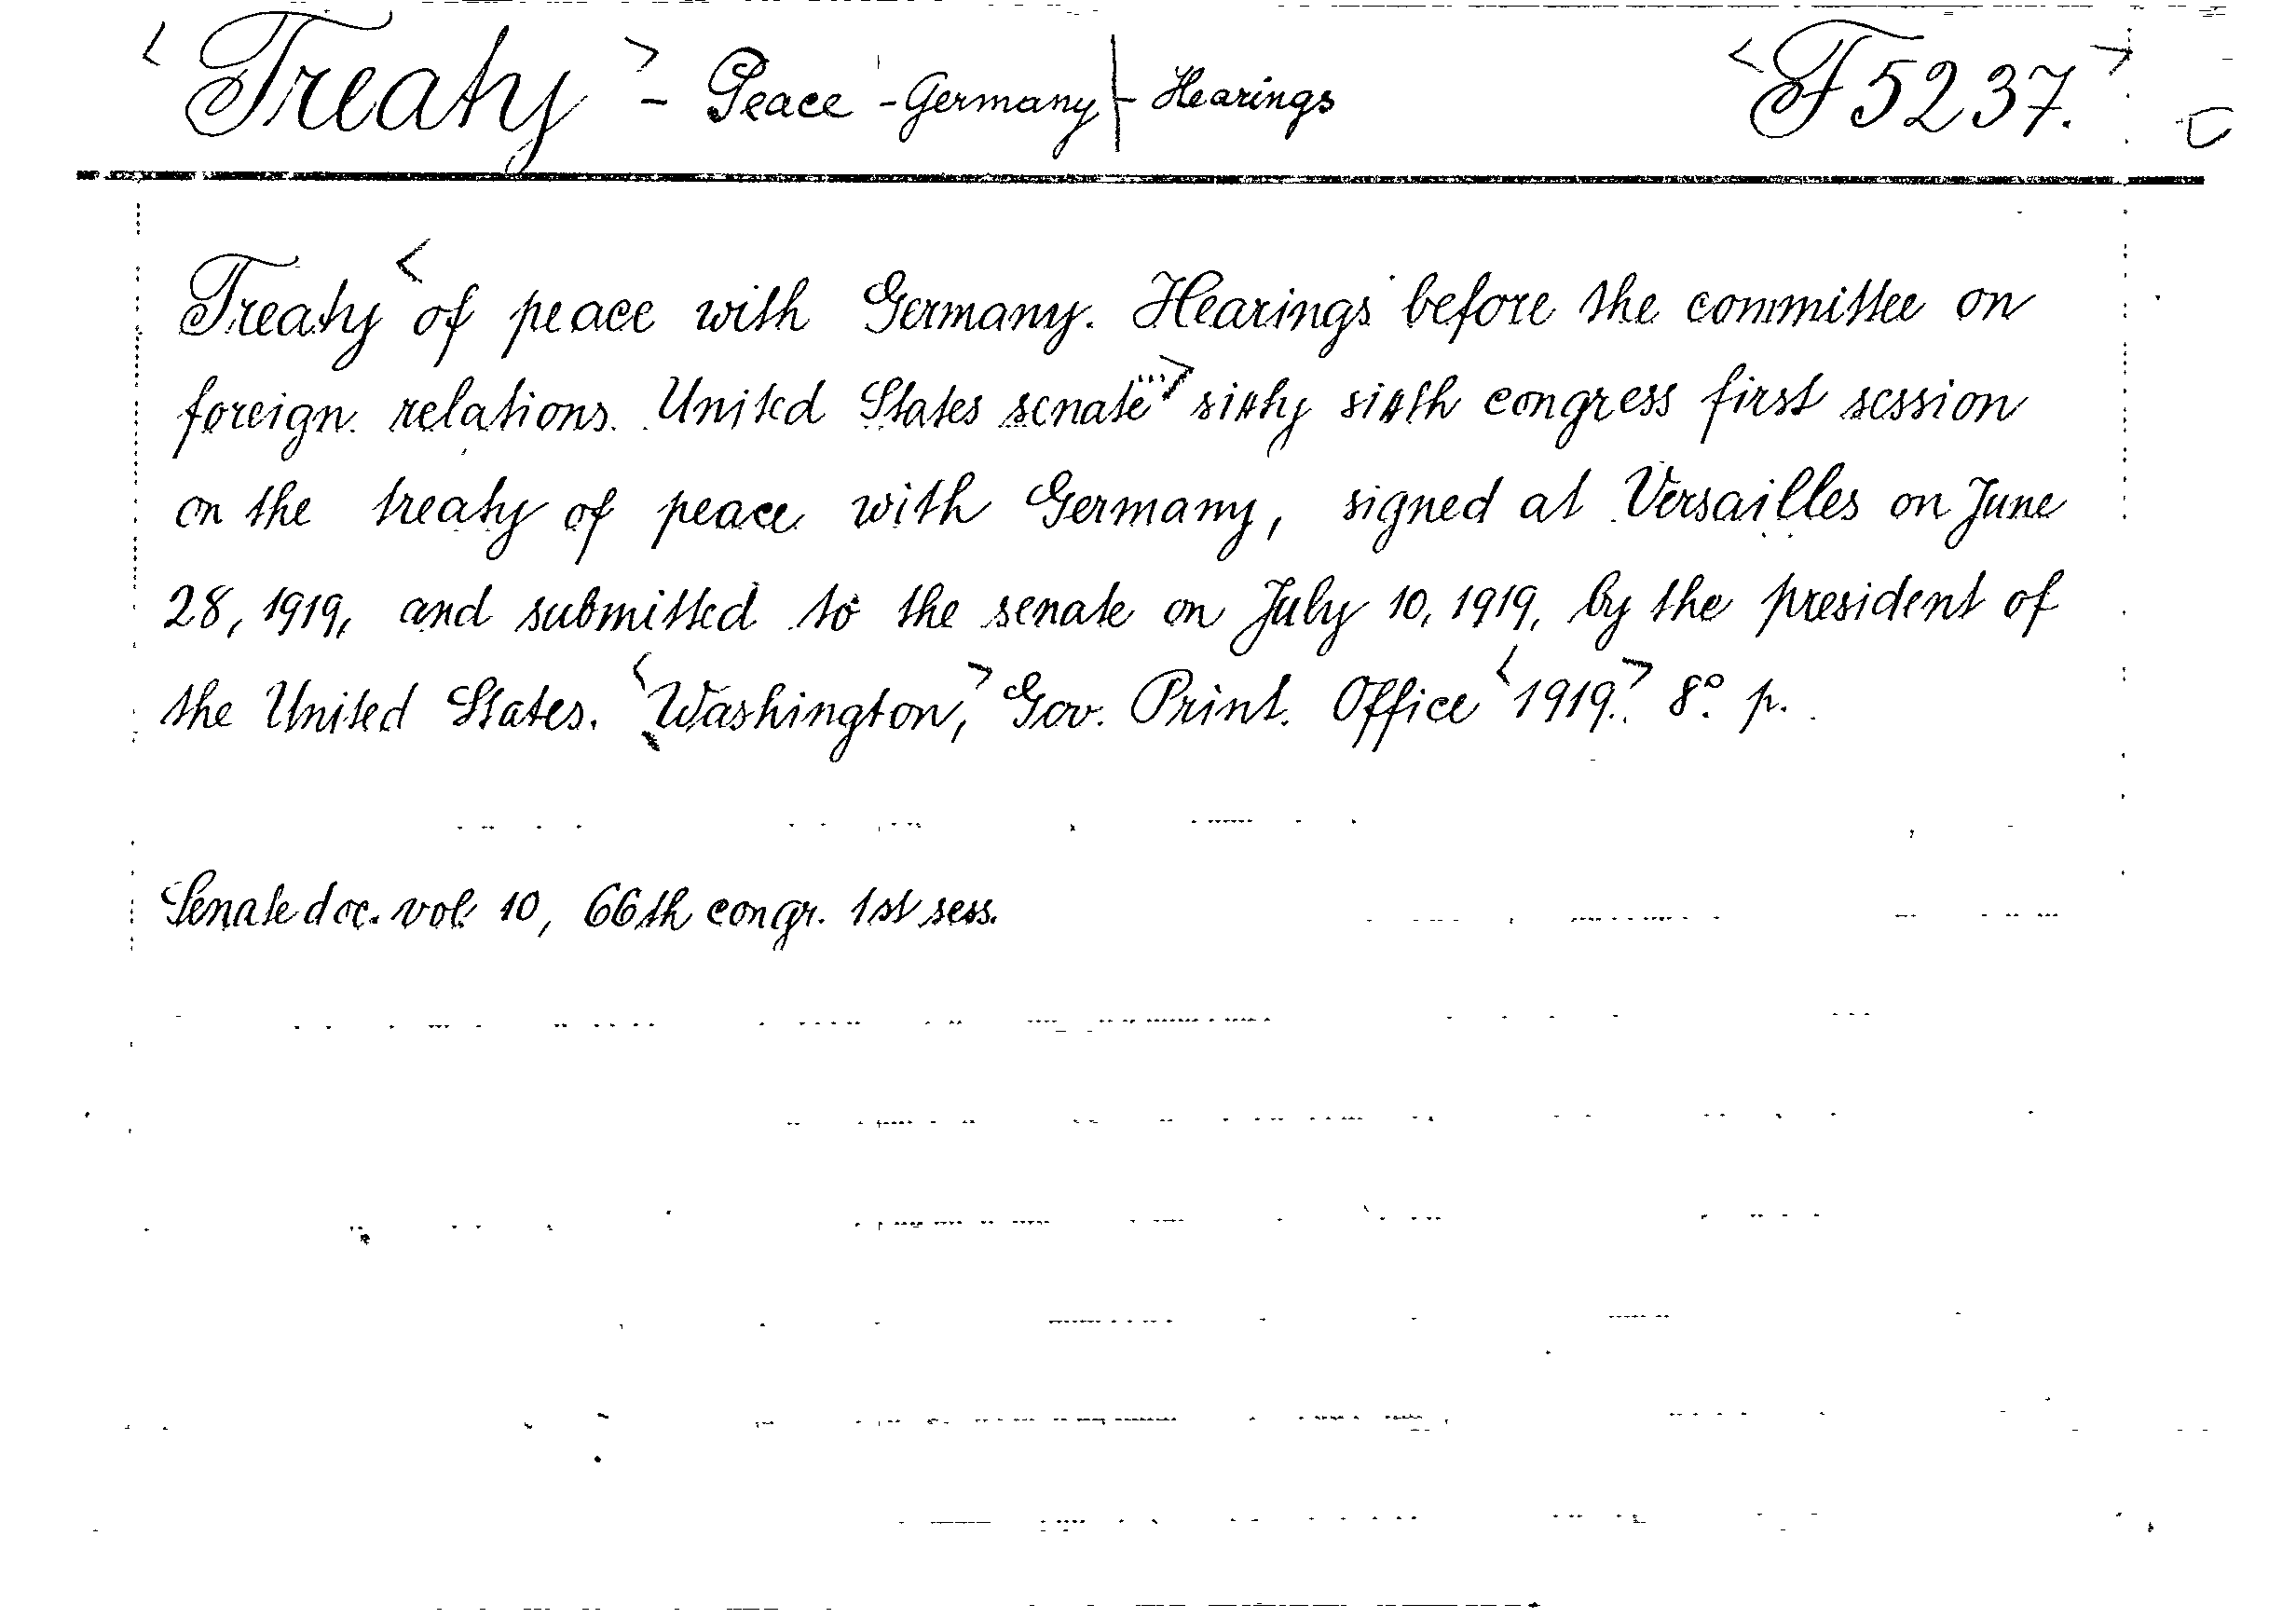 <Treaty> - Peace - Germany | - Hearings <F5237.>
Treaty <of peace with Germany. Hearings before the committee on
foreign relations. United States senate...> sixty sixth congress first session
on the treaty of peace with Germany, signed at Versailles on June
28, 1919, and submitted to the senate on July 10, 1919, by the president of
the United States. <Washington,> Gov. Print. Office <1919.> 8° p.
Senate doc. vol. 10, 66th congr. 1st sess.